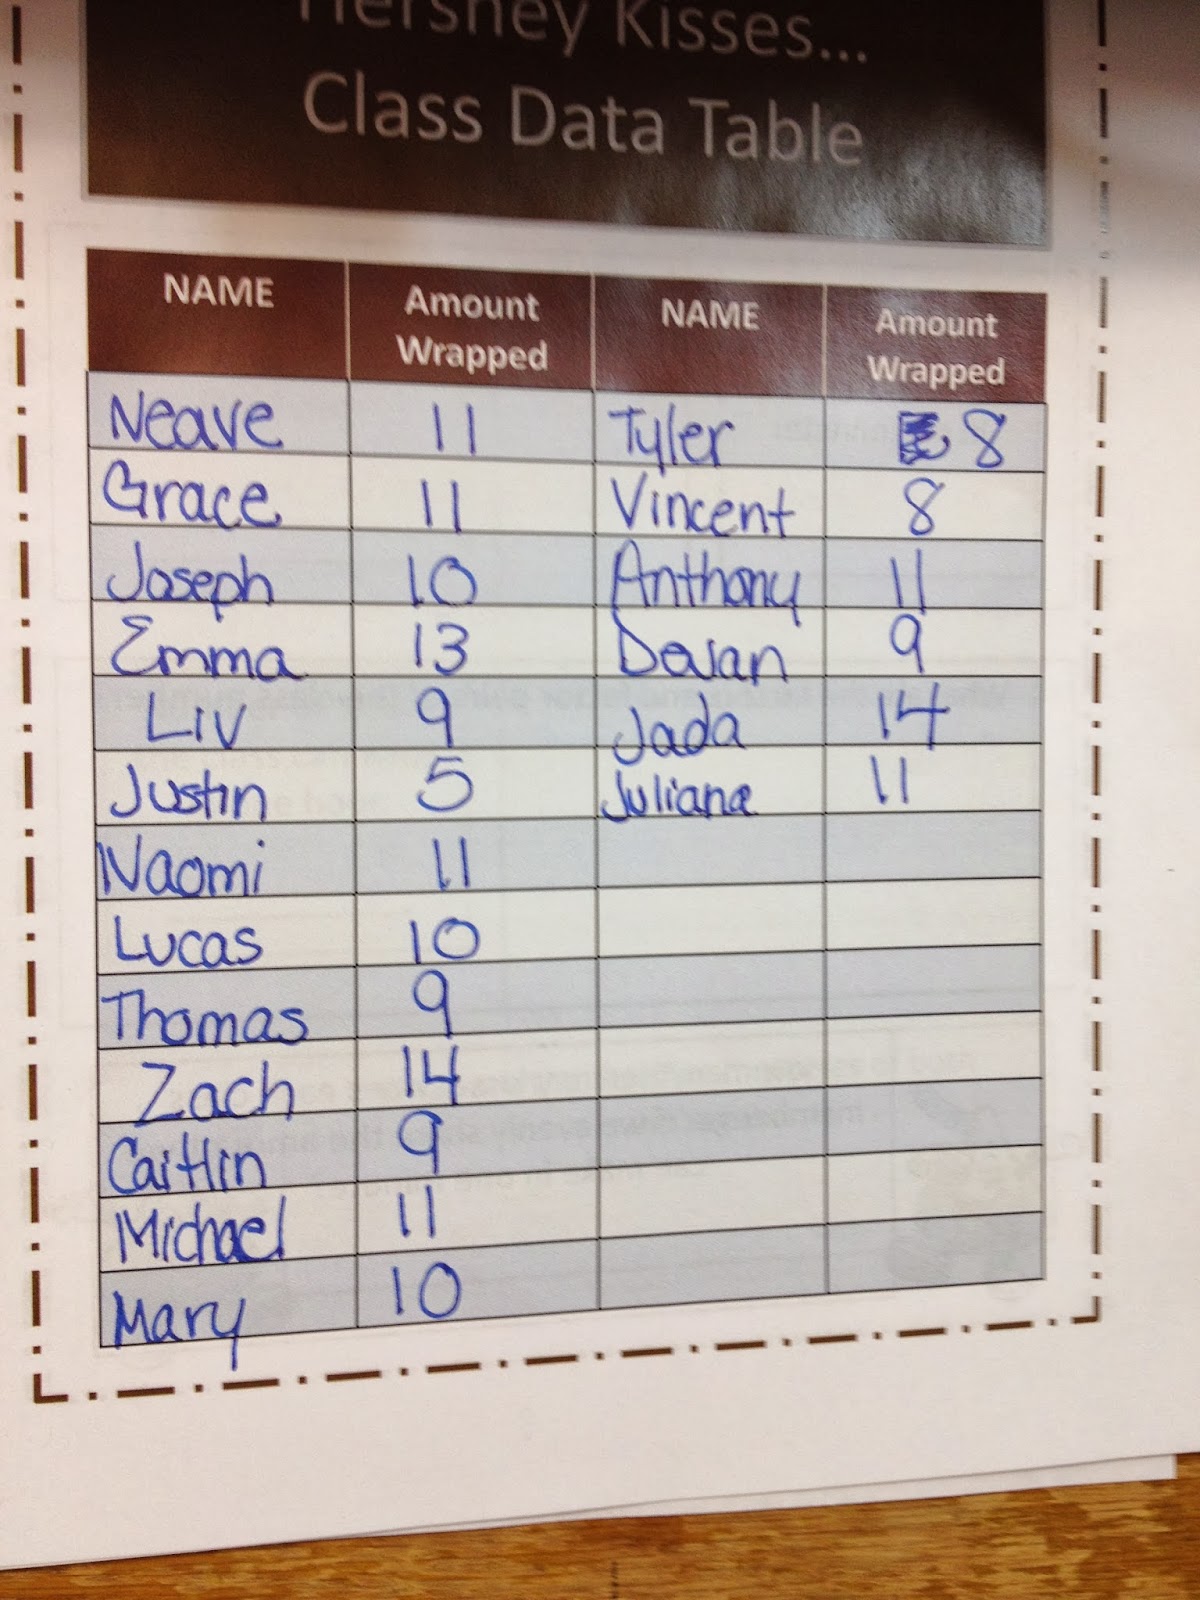 Hershey Kisses...
Class Data Table
NAME Amount Wrapped NAME Amount Wrapped
Neave 11 Tyler 8
Grace 11 Vincent 8
Joseph 10 Anthony 11
Emma 13 Devan 9
Liv 9 Jada 14
Justin 5 Juliana 11
Naomi 11
Lucas 10
Thomas 9
Zach 14
Caitlin 9
Michael 11
Mary 10